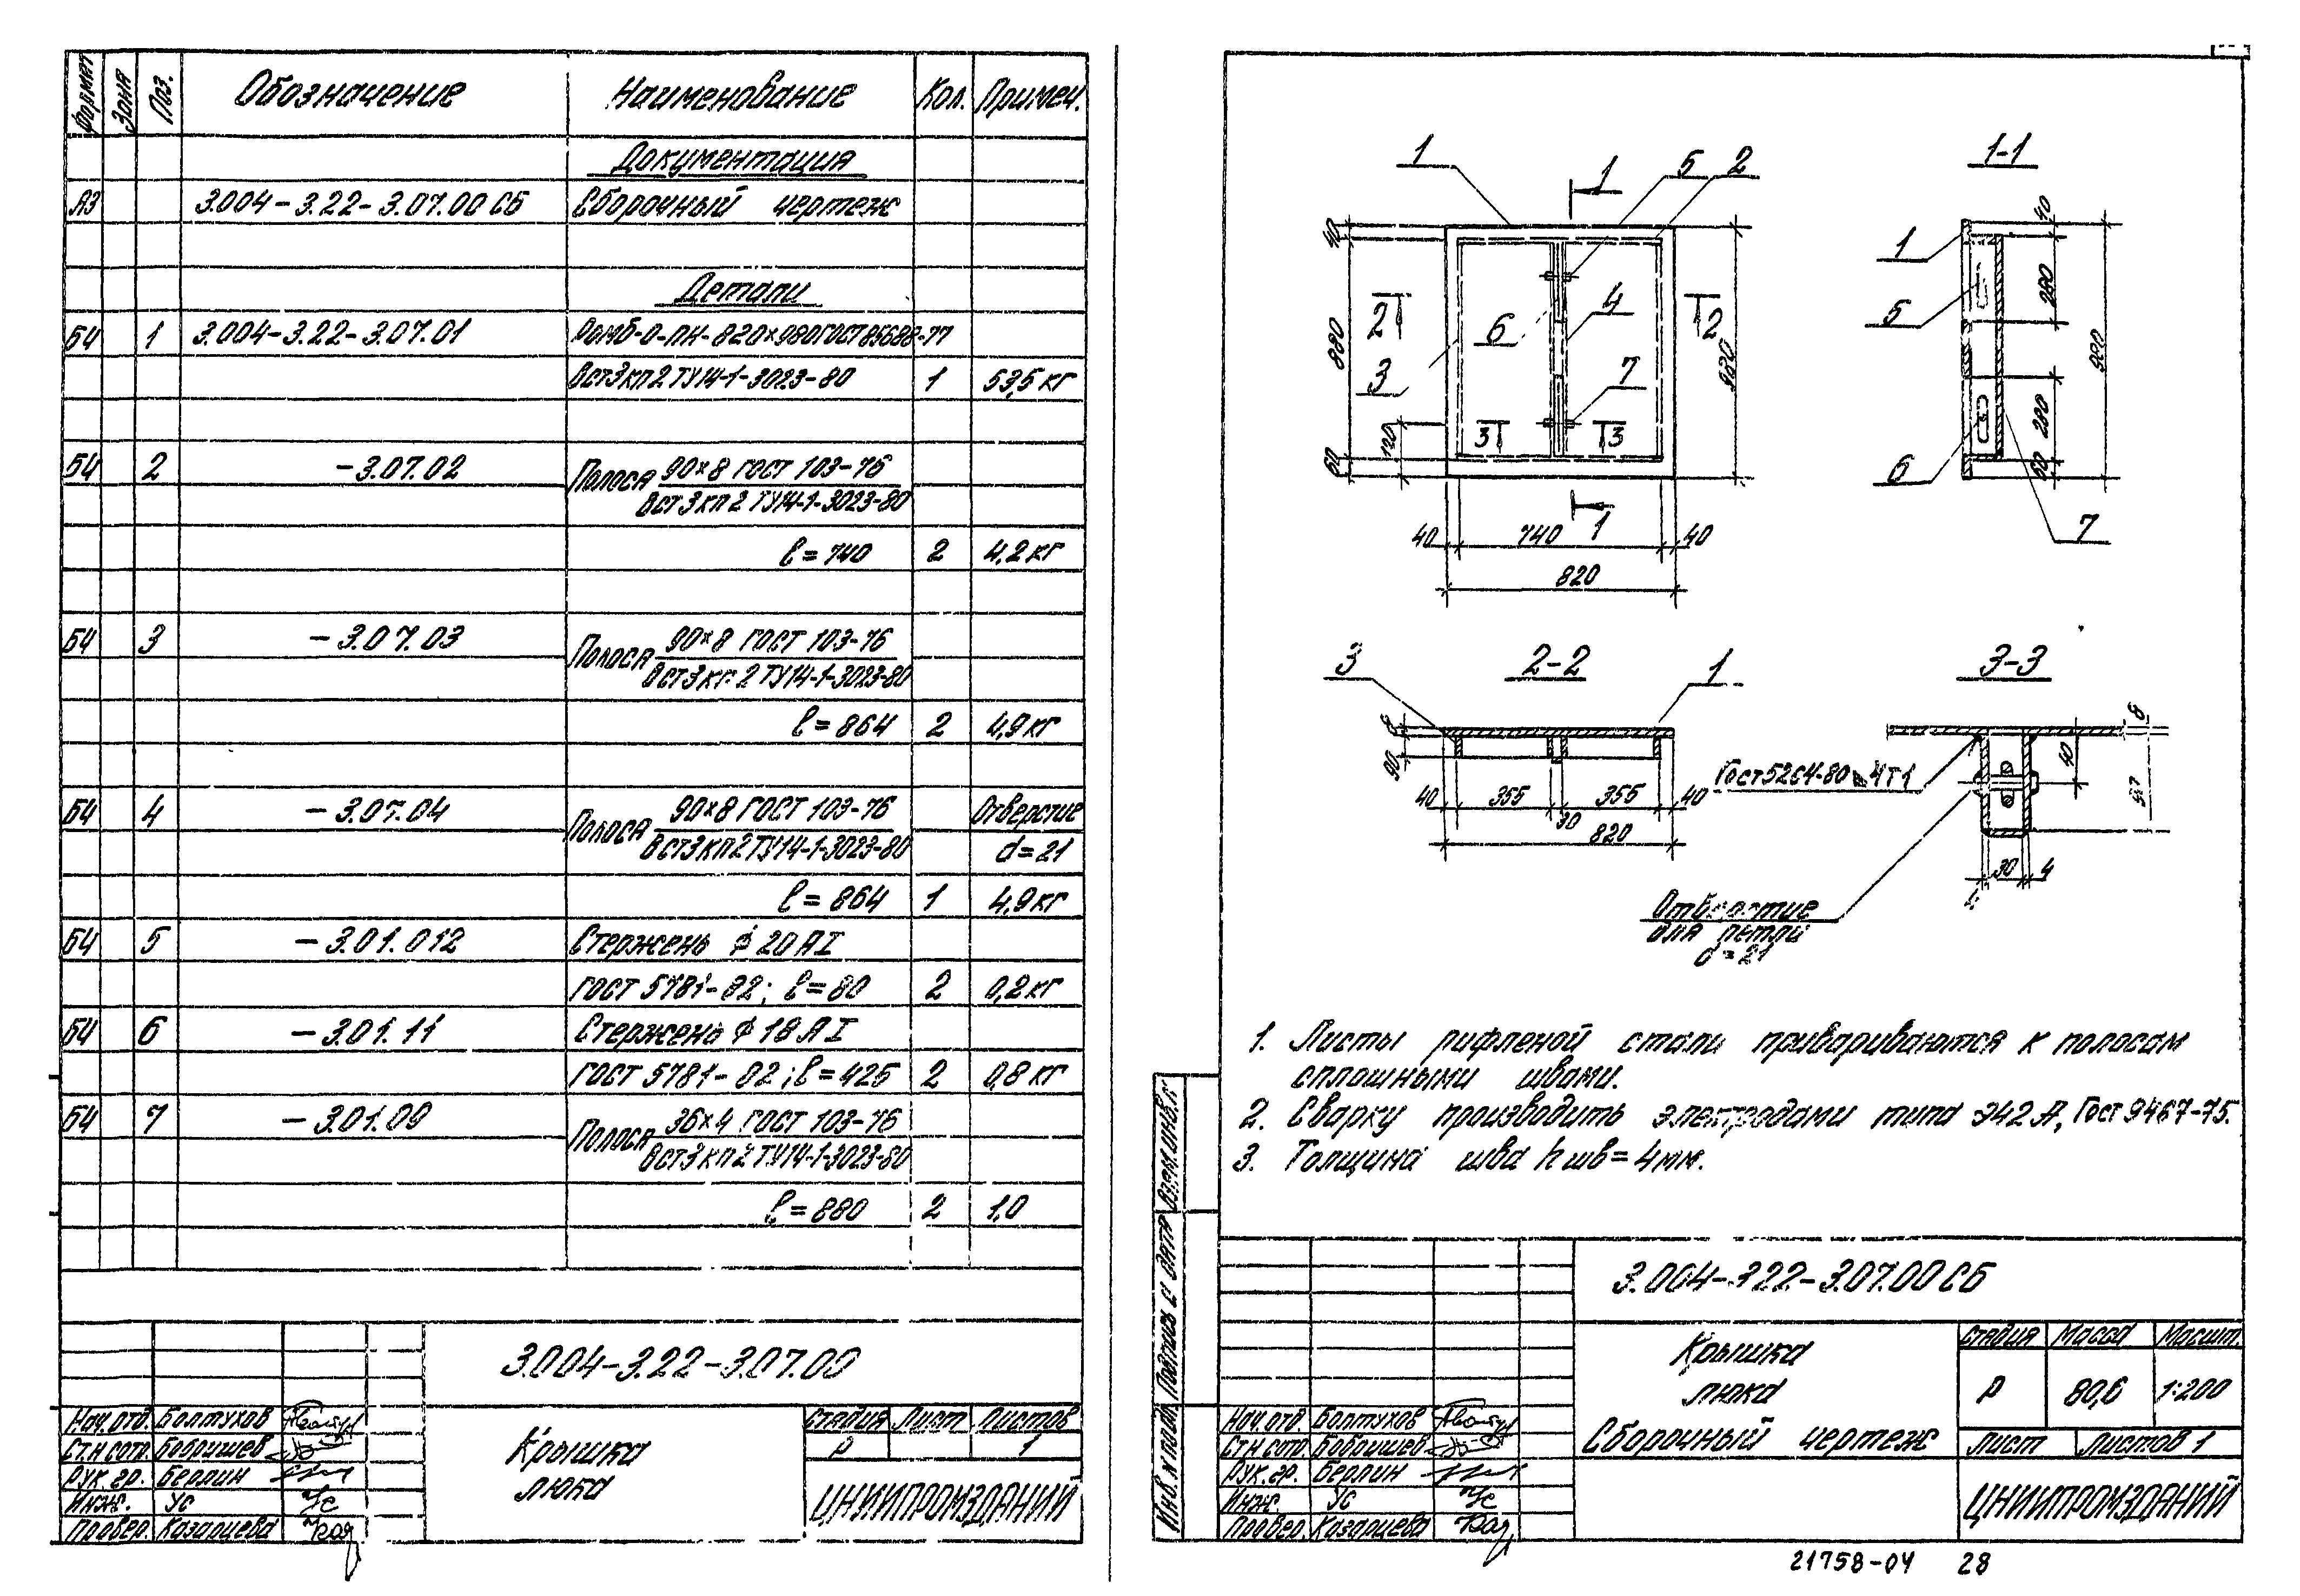 Формат Зона Поз. Обозначение Наименование Кол. Примеч.
Документация
А3 3.004-3.22-3.07.00 СБ Сборочный чертеж
Детали
БЧ 1 3.004-3.22-3.07.01 Ромб-О-ПН-820×980 ГОСТ 8568-77
ВСт3кп2 ТУ14-1-3023-80 1 53,5 кг
БЧ 2 -3.07.02 Полоса 90×8 ГОСТ 103-76
ВСт3кп2 ТУ14-1-3023-80
ℓ=740 2 4,2 кг
БЧ 3 -3.07.03 Полоса 90×8 ГОСТ 103-76
ВСт3кп2 ТУ14-1-3023-80
ℓ=864 2 4,9 кг
БЧ 4 -3.07.04 Полоса 90×8 ГОСТ 103-76 Отверстие
ВСт3кп2 ТУ14-1-3023-80 d=21
ℓ=864 1 4,9 кг
БЧ 5 -3.01.012 Стержень ϕ 20 АI
ГОСТ 5781-82; ℓ=80 2 0,2 кг
БЧ 6 -3.01.11 Стержень ϕ 18 АI
ГОСТ 5781-82; ℓ=425 2 0,8 кг
БЧ 7 -3.01.09 Полоса 36×4 ГОСТ 103-76
ВСт3кп2 ТУ14-1-3023-80
ℓ=880 2 1,0
3.004-3.22-3.07.00
Нач.отд. Болтухов
Ст.н.сотр. Бобришев
Рук.гр. Берлин
Инж. Ус
Провер. Казарцева
Крышка
люка
Стадия Лист Листов
Р 1
ЦНИИПРОМЗДАНИЙ
1 1 5 2
40 880 60 120
2 2
3 6 4 7
3 3
980
1
40 740 40
820
1-1
1 5 6 7
40 280 280 60 980
2-2
3 1
8 90
40 355 30 355 40
820
3-3
8 40
ГОСТ 5264-80 4 Т1
30 4
Отверстие
для петли
d=21
1. Листы рифленой стали привариваются к полосам
сплошными швами.
2. Сварку производить электродами типа Э42А, ГОСТ 9467-75.
3. Толщина шва hшв=4мм.
Инв.№ подл. Подпись и дата Взам.инв.№
3.004-3.22-3.07.00 СБ
Нач.отд. Болтухов
Ст.н.сотр. Бобришев
Рук.гр. Берлин
Инж. Ус
Провер. Казарцева
Крышка
люка
Сборочный чертеж
Стадия Масса Масшт.
Р 80,6 1:200
Лист Листов 1
ЦНИИПРОМЗДАНИЙ
21758-04 28